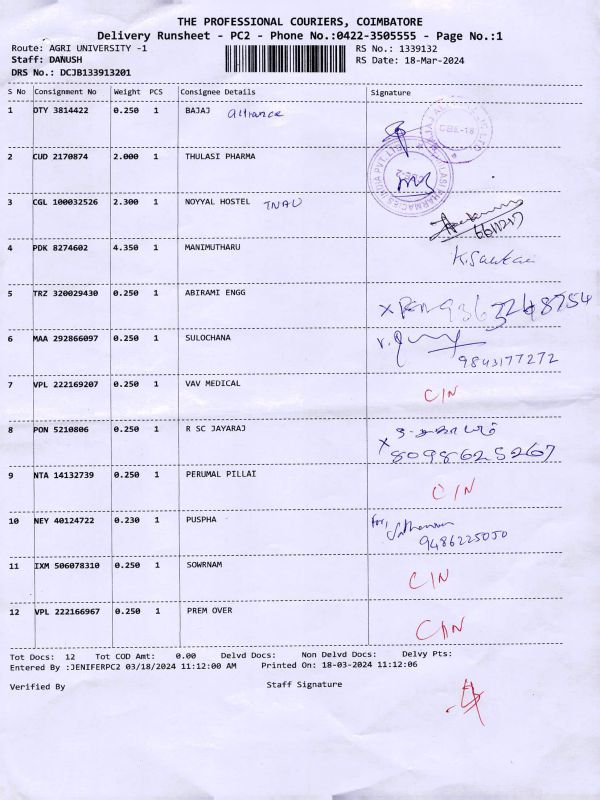 THE PROFESSIONAL COURIERS, COIMBATORE
Delivery Runsheet - PC2 - Phone No.:0422-3505555 - Page No.:1
Route: AGRI UNIVERSITY -1 RS No.: 1339132
Staff: DANUSH RS Date: 18-Mar-2024
DRS No.: DCJB133913201
S No Consignment No Weight PCS Consignee Details Signature
1 DTY 3814422 0.250 1 BAJAJ alliance
2 CUD 2170874 2.000 1 THULASI PHARMA
3 CGL 100032526 2.300 1 NOYYAL HOSTEL TNAU
4 PDK 8274602 4.350 1 MANIMUTHARU
5 TRZ 320029430 0.250 1 ABIRAMI ENGG
6 MAA 292866097 0.250 1 SULOCHANA 9843177272
7 VPL 222169207 0.250 1 VAV MEDICAL C/N
8 PON 5210806 0.250 1 R SC JAYARAJ 8098625267
9 NTA 14132739 0.250 1 PERUMAL PILLAI C/N
10 NEY 40124722 0.230 1 PUSPHA for, 9486225050
11 IXM 506078310 0.250 1 SOWRNAM C/N
12 VPL 222166967 0.250 1 PREM OVER
Tot Docs: 12 Tot COD Amt: 0.00 Delvd Docs: Non Delvd Docs: Delvy Pts:
Entered By :JENIFERPC2 03/18/2024 11:12:00 AM Printed On: 18-03-2024 11:12:06
Verified By Staff Signature